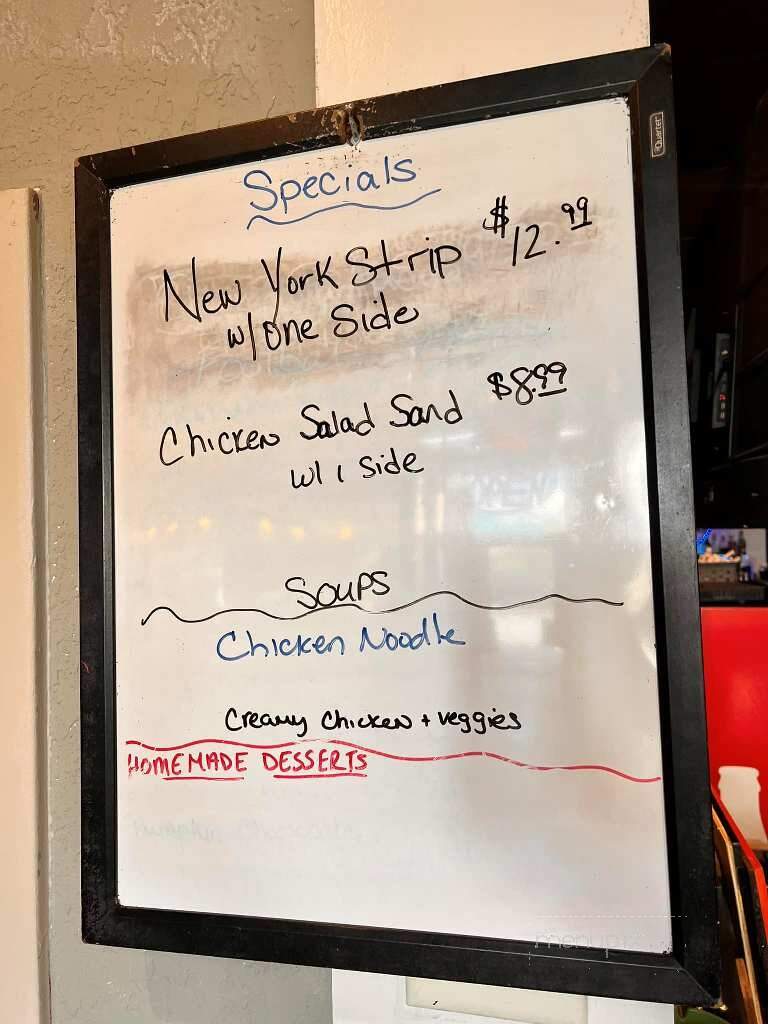 Quartet
Specials
New York Strip $12.99
w/one Side
Chicken Salad Sand $8.99
w/ 1 Side
OPEN
Soups
Chicken Noodle
Creamy Chicken + veggies
HOMEMADE DESSERTS